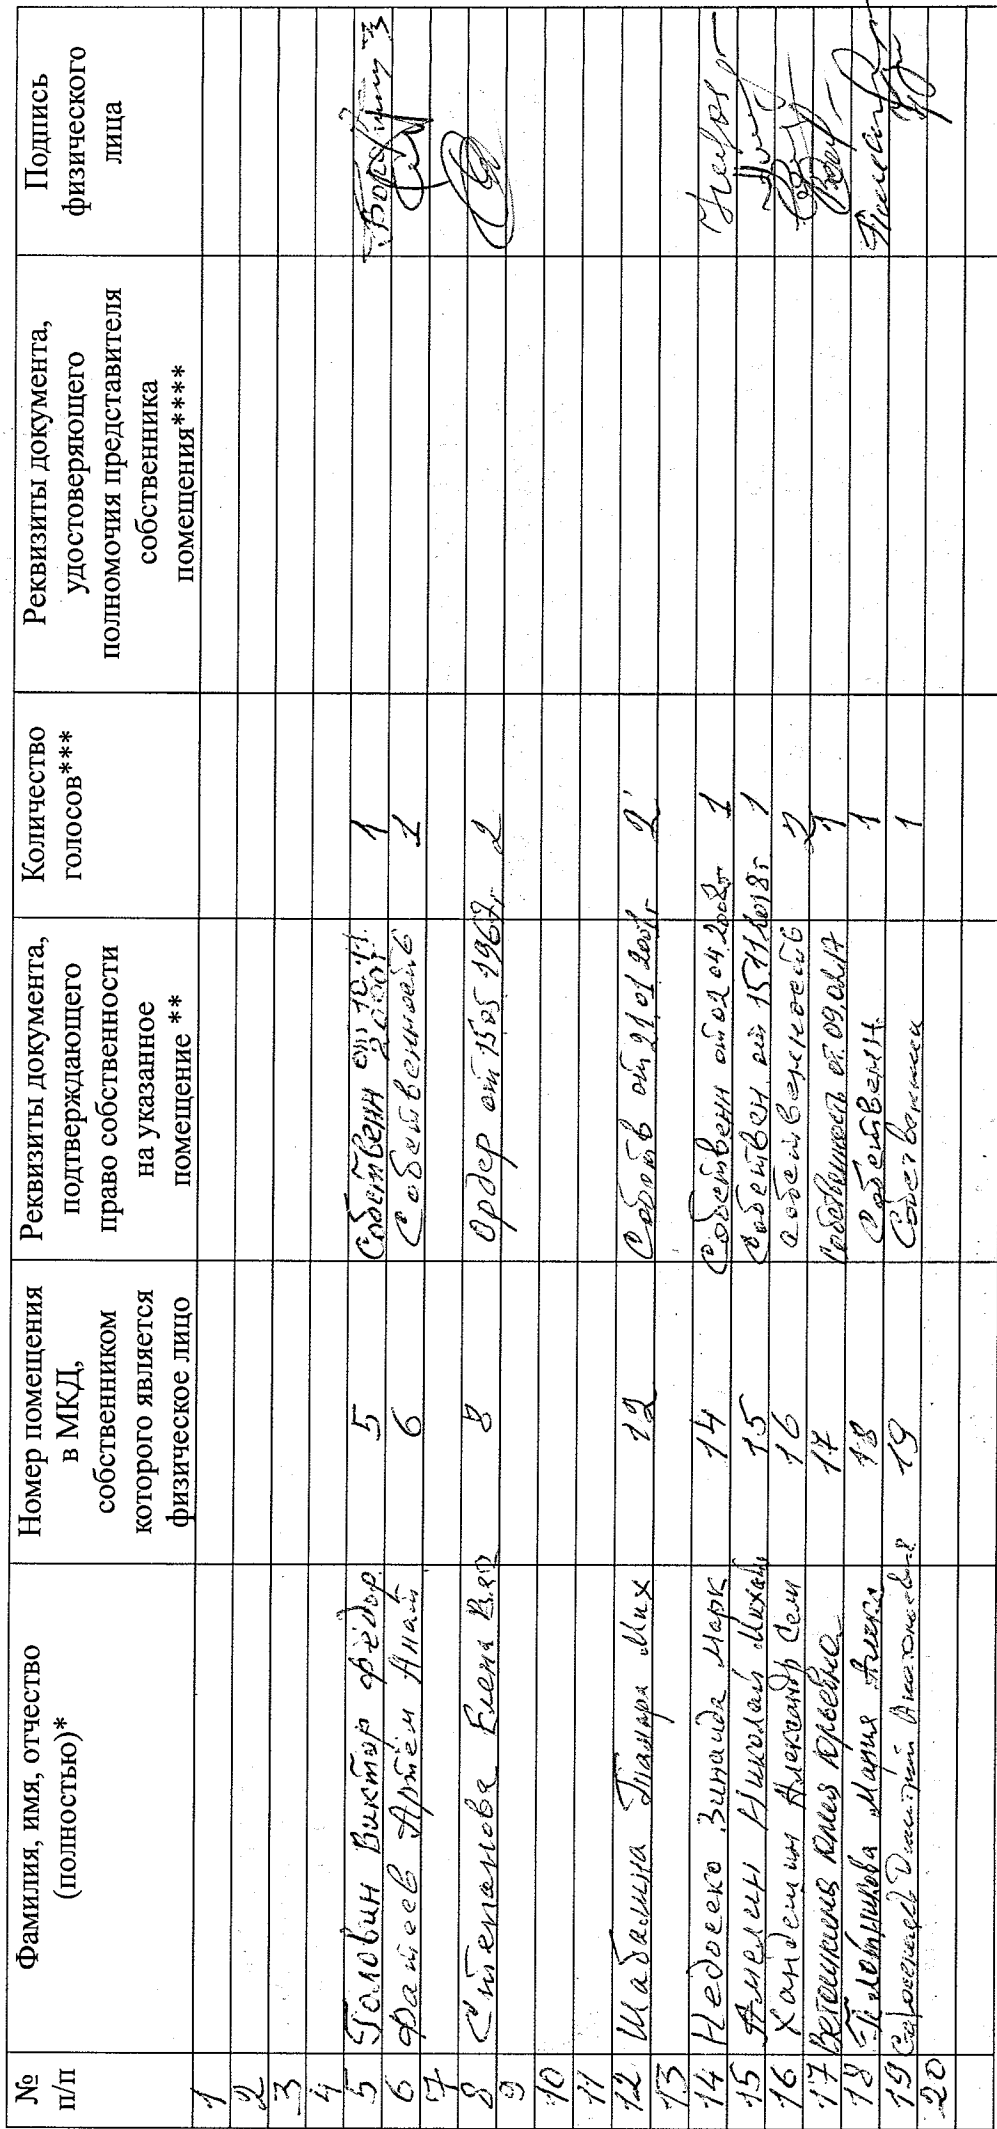 № п/п
Фамилия, имя, отчество (полностью)*
Номер помещения в МКД, собственником которого является физическое лицо
Реквизиты документа, подтверждающего право собственности на указанное помещение **
Количество голосов***
Реквизиты документа, удостоверяющего полномочия представителя собственника помещения****
Подпись физического лица
1
2
3
4
5 Головин Виктор Фёдор. 5 Собственн от 10.11. 1
6 Фатеев Артём Анат 6 Собственность 1
7
8 Степанова Елена 8 Ордер от 15 05 1967г 2
9
10
11
12 Шабалина Тамара Мих 12 Собств от 21 01 2001г 2
13
14 Недосеко Зинаида Марк 14 Собственн от 02 04 2008г 1
15 Амелин Николай Михай 15 Собствен от 15 11 2018г 1
16 Хандешин Александр Сем 16 Собственность 2
17 Ветошкина Юлия Юрьевна 17 Собственность от 09.02.17 1
18 Плотникова Мария Алекс 18 Собственн. 1
19 Дмитрий 19 1
20